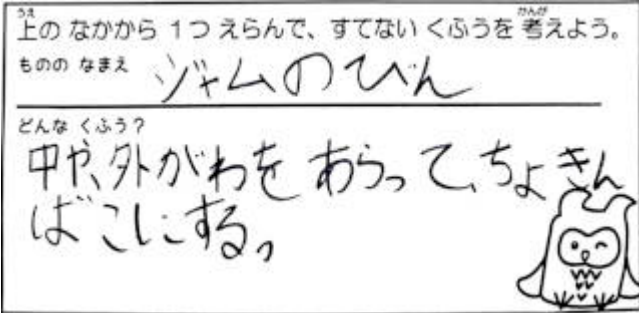 上の なかから 1つ えらんで、すてない くふうを 考えよう。
ものの なまえ ジャムのびん
どんな くふう?
中や、外がわを あらって、ちょきん
ばこにする。